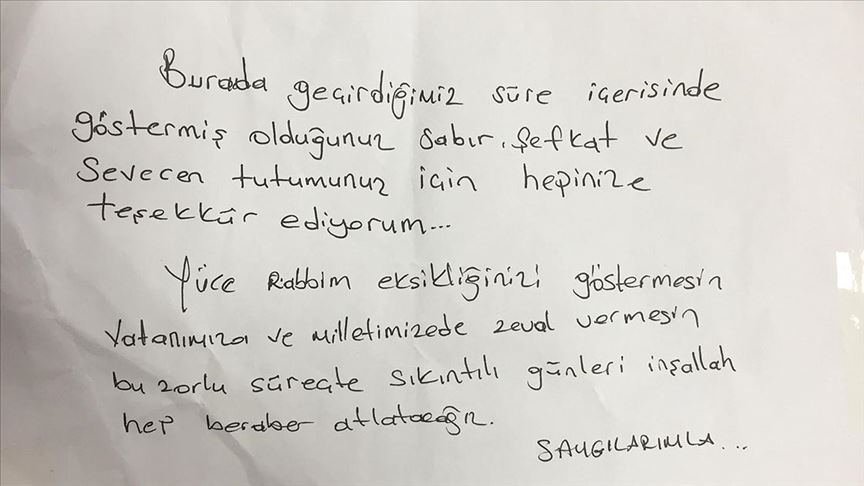 Burada geçirdiğimiz süre içerisinde
göstermiş olduğunuz sabır, şefkat ve
sevecen tutumunuz için hepinize
teşekkür ediyorum...
Yüce Rabbim eksikliğinizi göstermesin
Vatanımıza ve milletimizede zeval vermesin
bu zorlu süreçte sıkıntılı günleri inşallah
hep beraber atlatacağız.
SAYGILARIMLA...